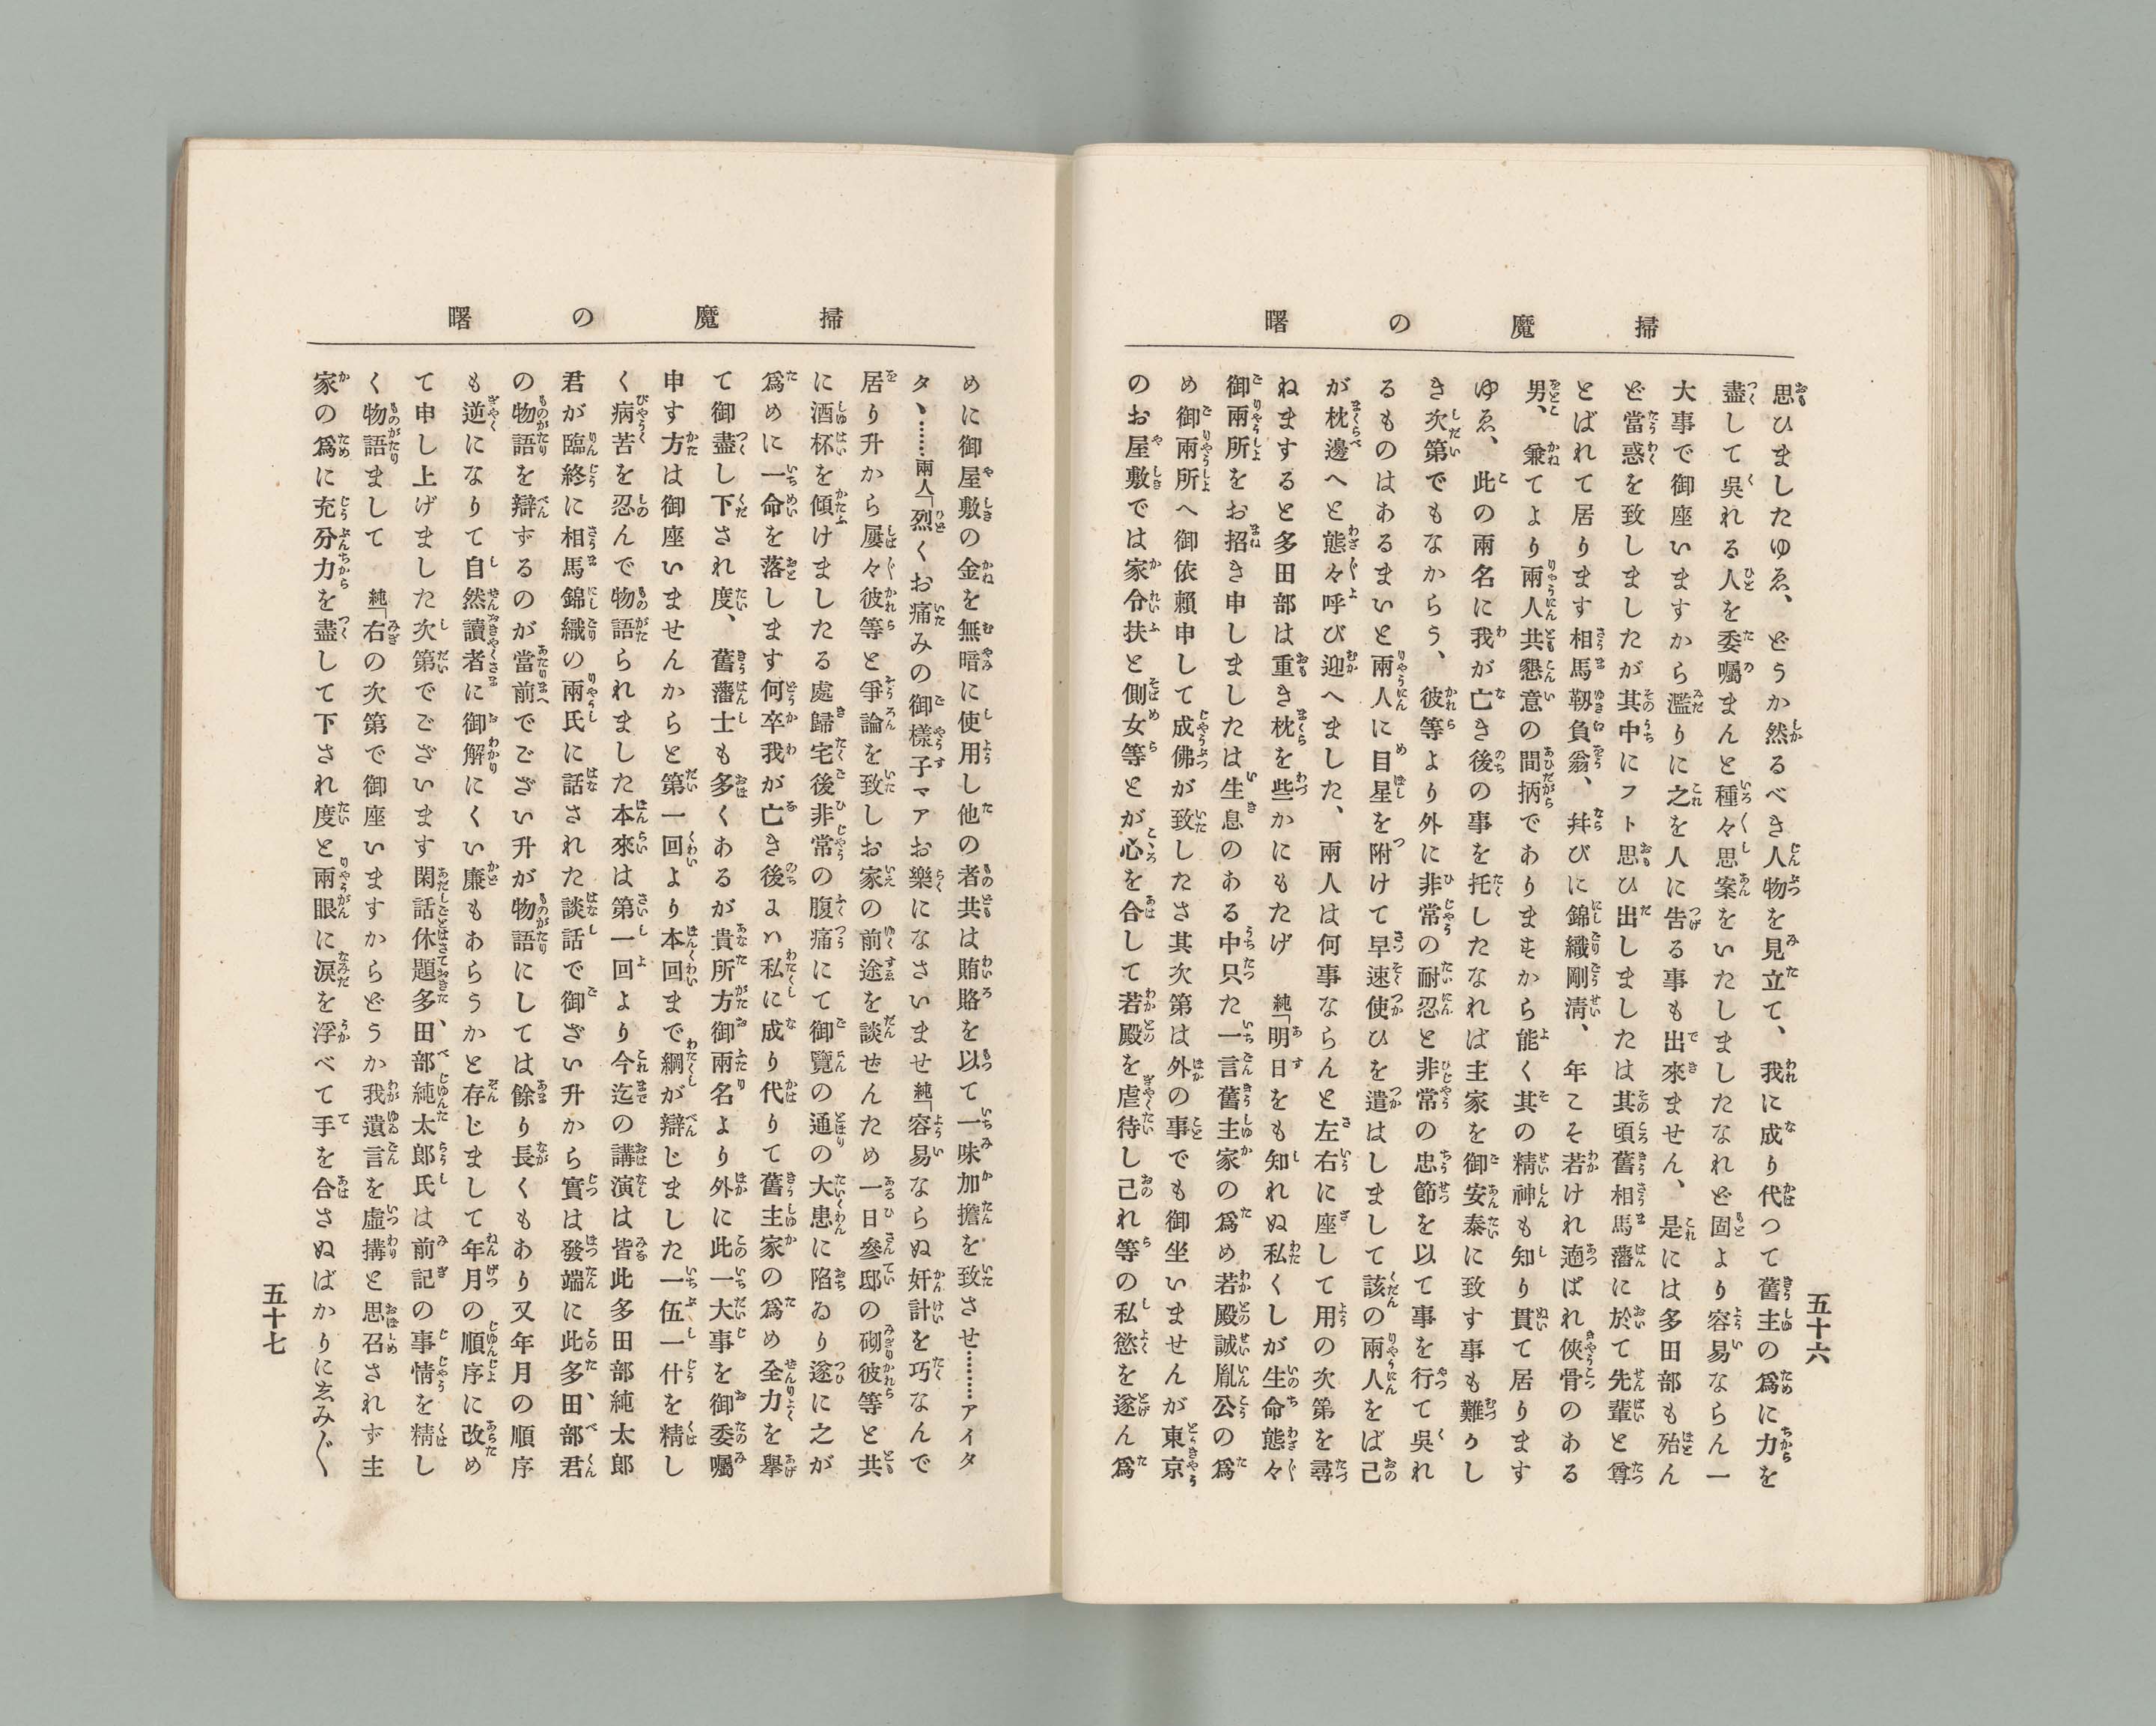 掃魔の曙
五十六
思ひましたゆゑ、どうか然るべき人物を見立て、我に成り代つて舊主の爲に力を
盡して吳れる人を委囑まんと種々思案をいたしましたなれど固より容易ならん一
大事で御座いますから濫りに之を人に告る事も出來ません、是には多田部も殆ん
ど當惑を致しましたが其中にフト思ひ出しましたは其頃舊相馬藩に於て先輩と尊
とばれて居ります相馬靱負翁、幷びに錦織剛淸、年こそ若けれ適ぱれ俠骨のある
男、兼てより兩人共懇意の間柄でありますから能く其の精神も知り貫て居ります
ゆゑ、此の兩名に我が亡き後の事を托したなれば主家を御安泰に致す事も難うし
き次第でもなからう、彼等より外に非常の耐忍と非常の忠節を以て事を行て吳れ
るものはあるまいと兩人に目星を附けて早速使ひを遣はしまして該の兩人をば己
が枕邊へと態々呼び迎へました、兩人は何事ならんと左右に座して用の次第を尋
ねますると多田部は重き枕を些かにもたげ　純「明日をも知れぬ私くしが生命態々
御兩所をお招き申しましたは生息のある中只た一言舊主家の爲め若殿誠胤公の爲
め御兩所へ御依賴申して成佛が致したさ其次第は外の事でも御坐いませんが東京
のお屋敷では家令扶と側女等とが心を合して若殿を虐待し己れ等の私慾を遂ん爲
掃魔の曙
めに御屋敷の金を無暗に使用し他の者共は賄賂を以て一味加擔を致させ………アイタ
タヽ……兩人「烈くお痛みの御樣子マアお樂になさいませ　純「容易ならぬ奸計を巧なんで
居り升から屢々彼等と爭論を致しお家の前途を談ぜんため一日參邸の砌彼等と共
に酒杯を傾けましたる處歸宅後非常の腹痛にて御覽の通の大患に陷ゐり遂に之が
爲めに一命を落します何卒我が亡き後ハ私に成り代りて舊主家の爲め全力を擧
て御盡し下され度、舊藩士も多くあるが貴所方御兩名より外に此一大事を御委囑
申す方は御座いませんからと第一回より本回まで綱が辯じました一伍一什を精し
く病苦を忍んで物語られました本來は第一回より今迄の講演は皆此多田部純太郎
君が臨終に相馬錦織の兩氏に話された談話で御ざい升から實は發端に此多田部君
の物語を辯ずるのが當前でござい升が物語にしては餘り長くもあり又年月の順序
も逆になりて自然讀者に御解にくい廉もあらうかと存じまして年月の順序に改め
て申し上げました次第でございます閑話休題、多田部純太郎氏は前記の事情を精し
く物語まして　純「右の次第で御座いますからどうか我遺言を虛搆と思召されず主
家の爲に充分力を盡して下され度と兩眼に淚を浮べて手を合さぬばかりにゑみ〲
五十七